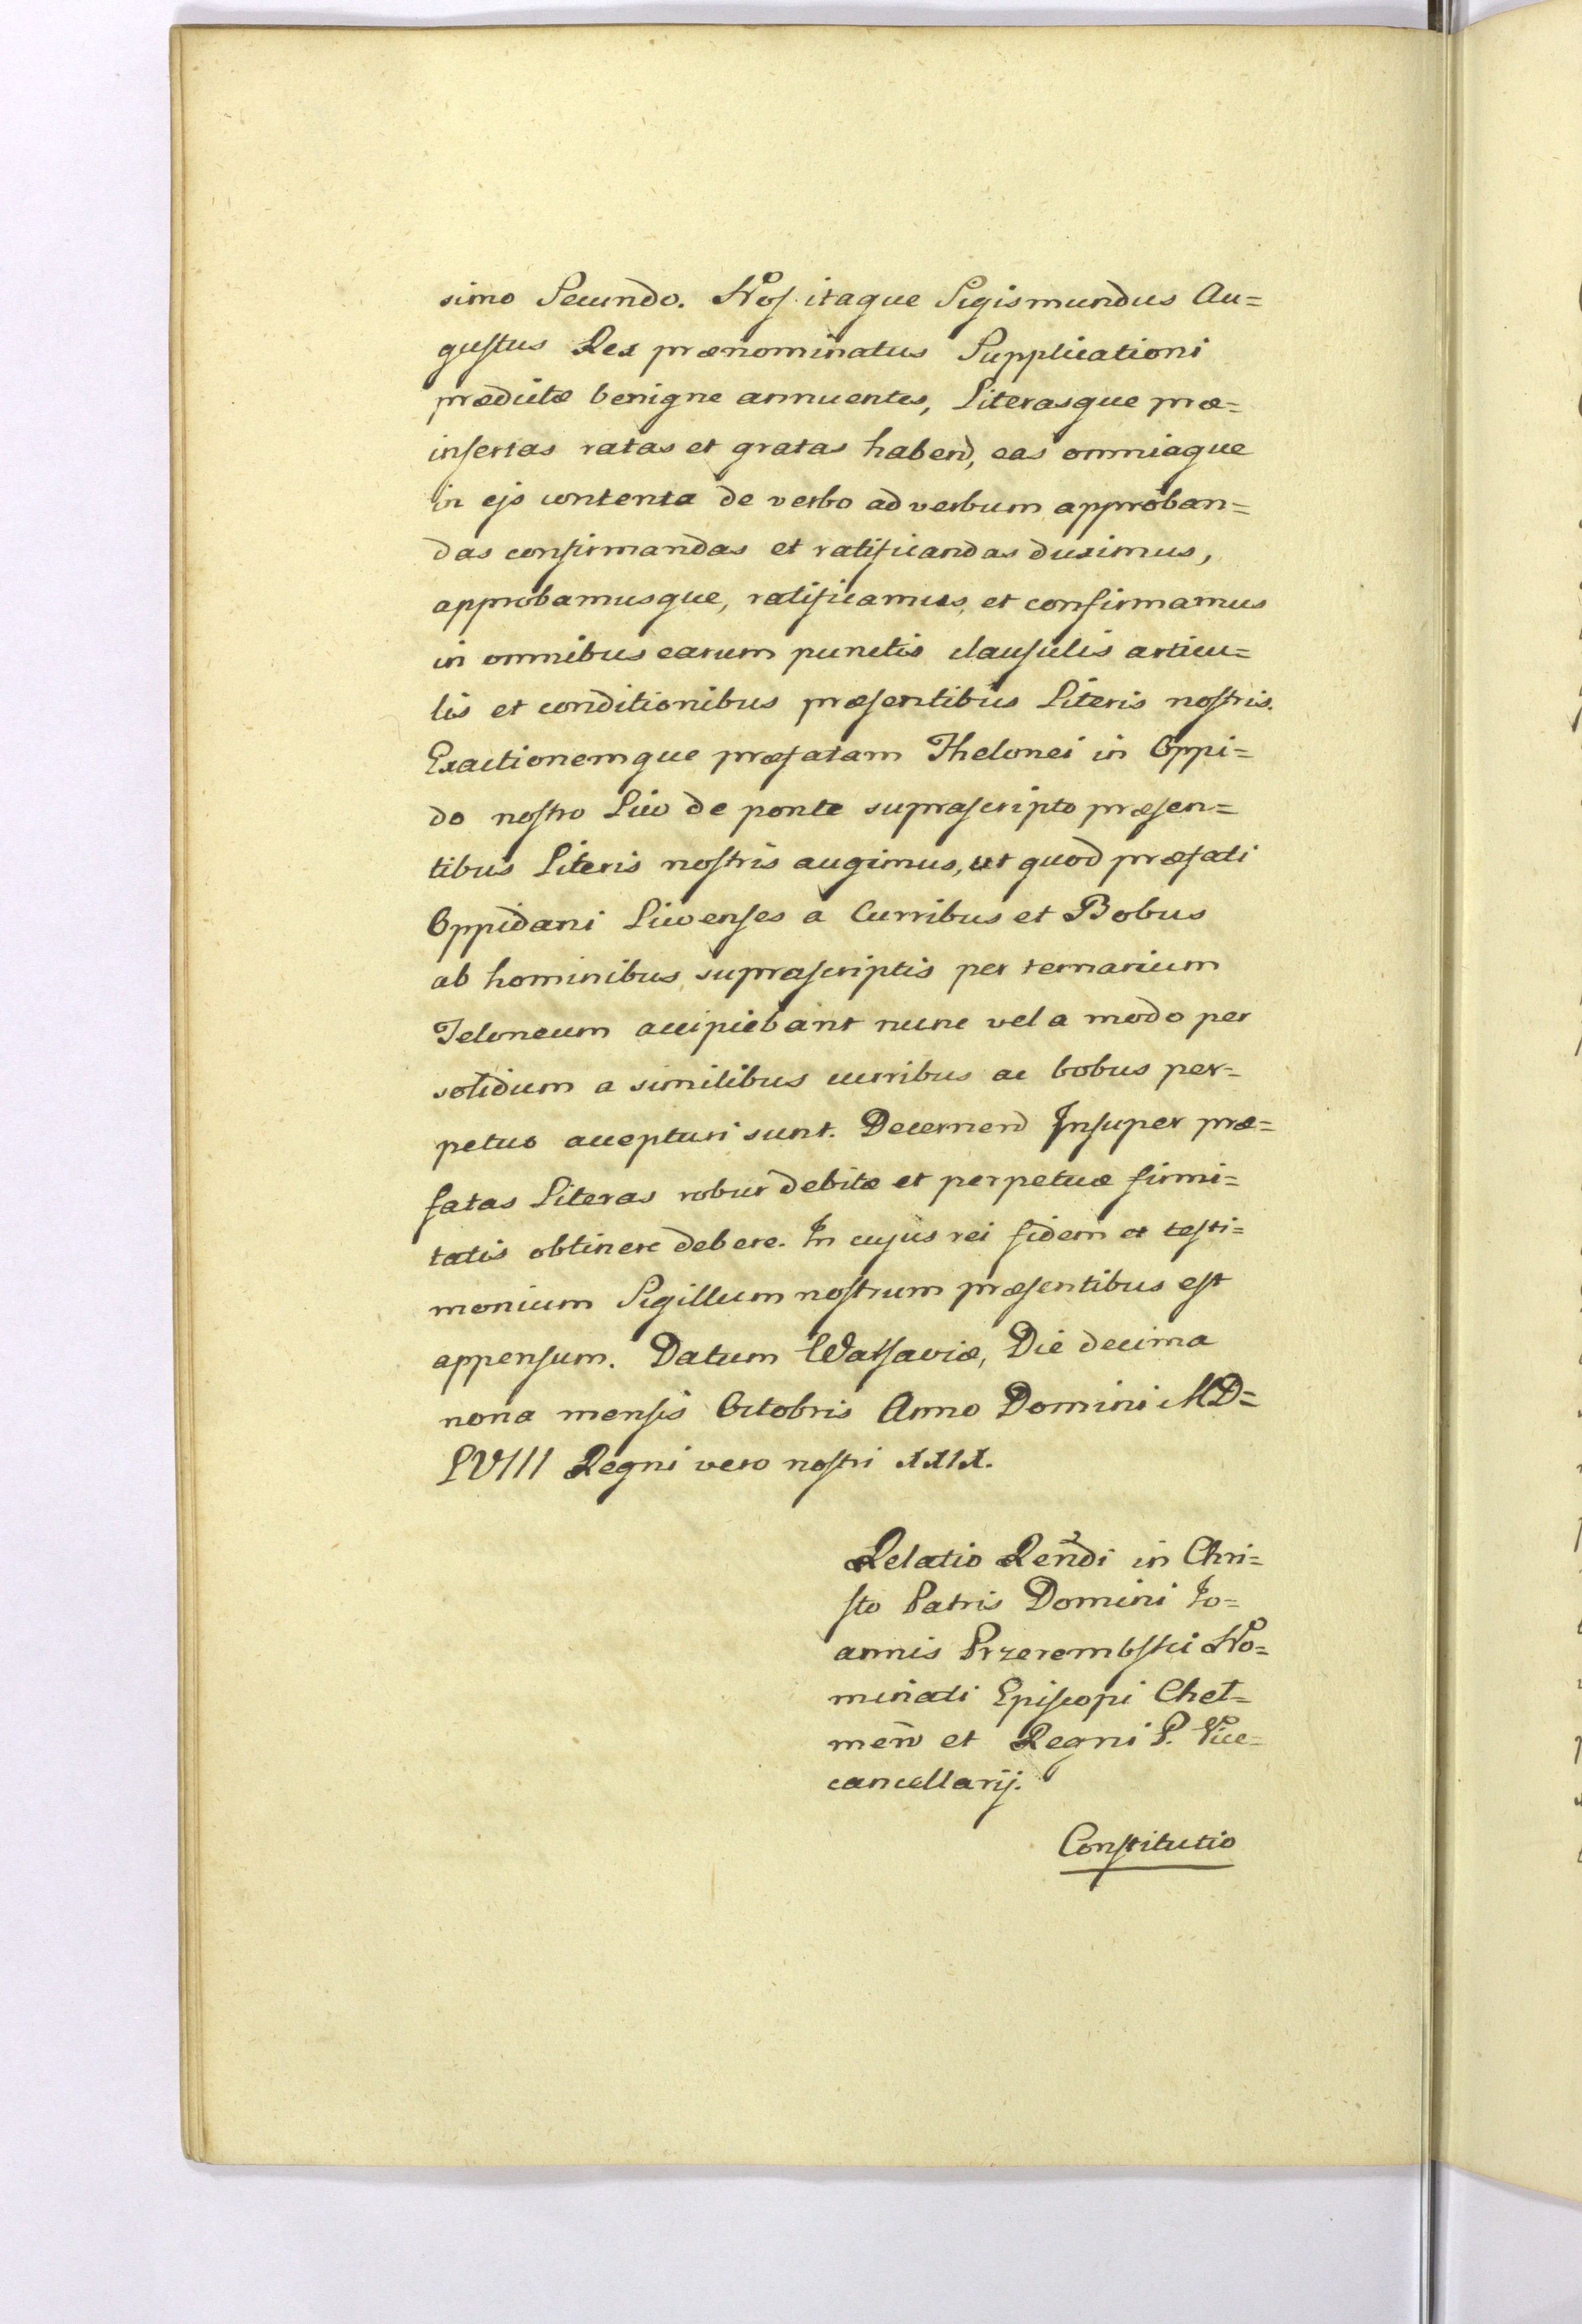 simo Secundo. Nos itaque Sigismundus Au=
gustus Rex prænominatus Supplicationi
prædictæ benigne annuentes, Literasque præ=
insertas ratas et gratas habend, eas omniaque
in ejs contenta de verbo ad verbum approban=
das confirmandas et ratificandas duximus,
approbamusque, ratificamus, et confirmamus
in omnibus earum punctis clausulis articu=
lis et conditionibus præsentibus Literis nostris.
Exactionemque præfatam Thelonei in Oppi=
do nostro Liw de ponte suprascripto præsen=
tibus Literis nostris augimus, ut quod præfati
Oppidani Liwenses a Curribus et Bobus
ab hominibus suprascriptis per ternarium
Teloneum accipiebant nunc vel a modo per
solidum a similibus curribus ac bobus per=
petuo accepturi sunt. Decernend Insuper præ=
fatas Literas robur debitæ et perpetuæ firmi=
tatis obtinere debere. In cujus rei fidem et testi=
monium Sigillum nostrum præsentibus est
appensum. Datum Warsaviæ, Die decima
nona mensis Octobris Anno Domini MD=
LVIII Regni vero nostri XXIX.
Relatio Rendi in Chri=
sto Patris Domini Io=
annis Przerembski No=
minati Episcopi Cheł=
men et Regni P. Vice=
cancellarij.
Constitutio